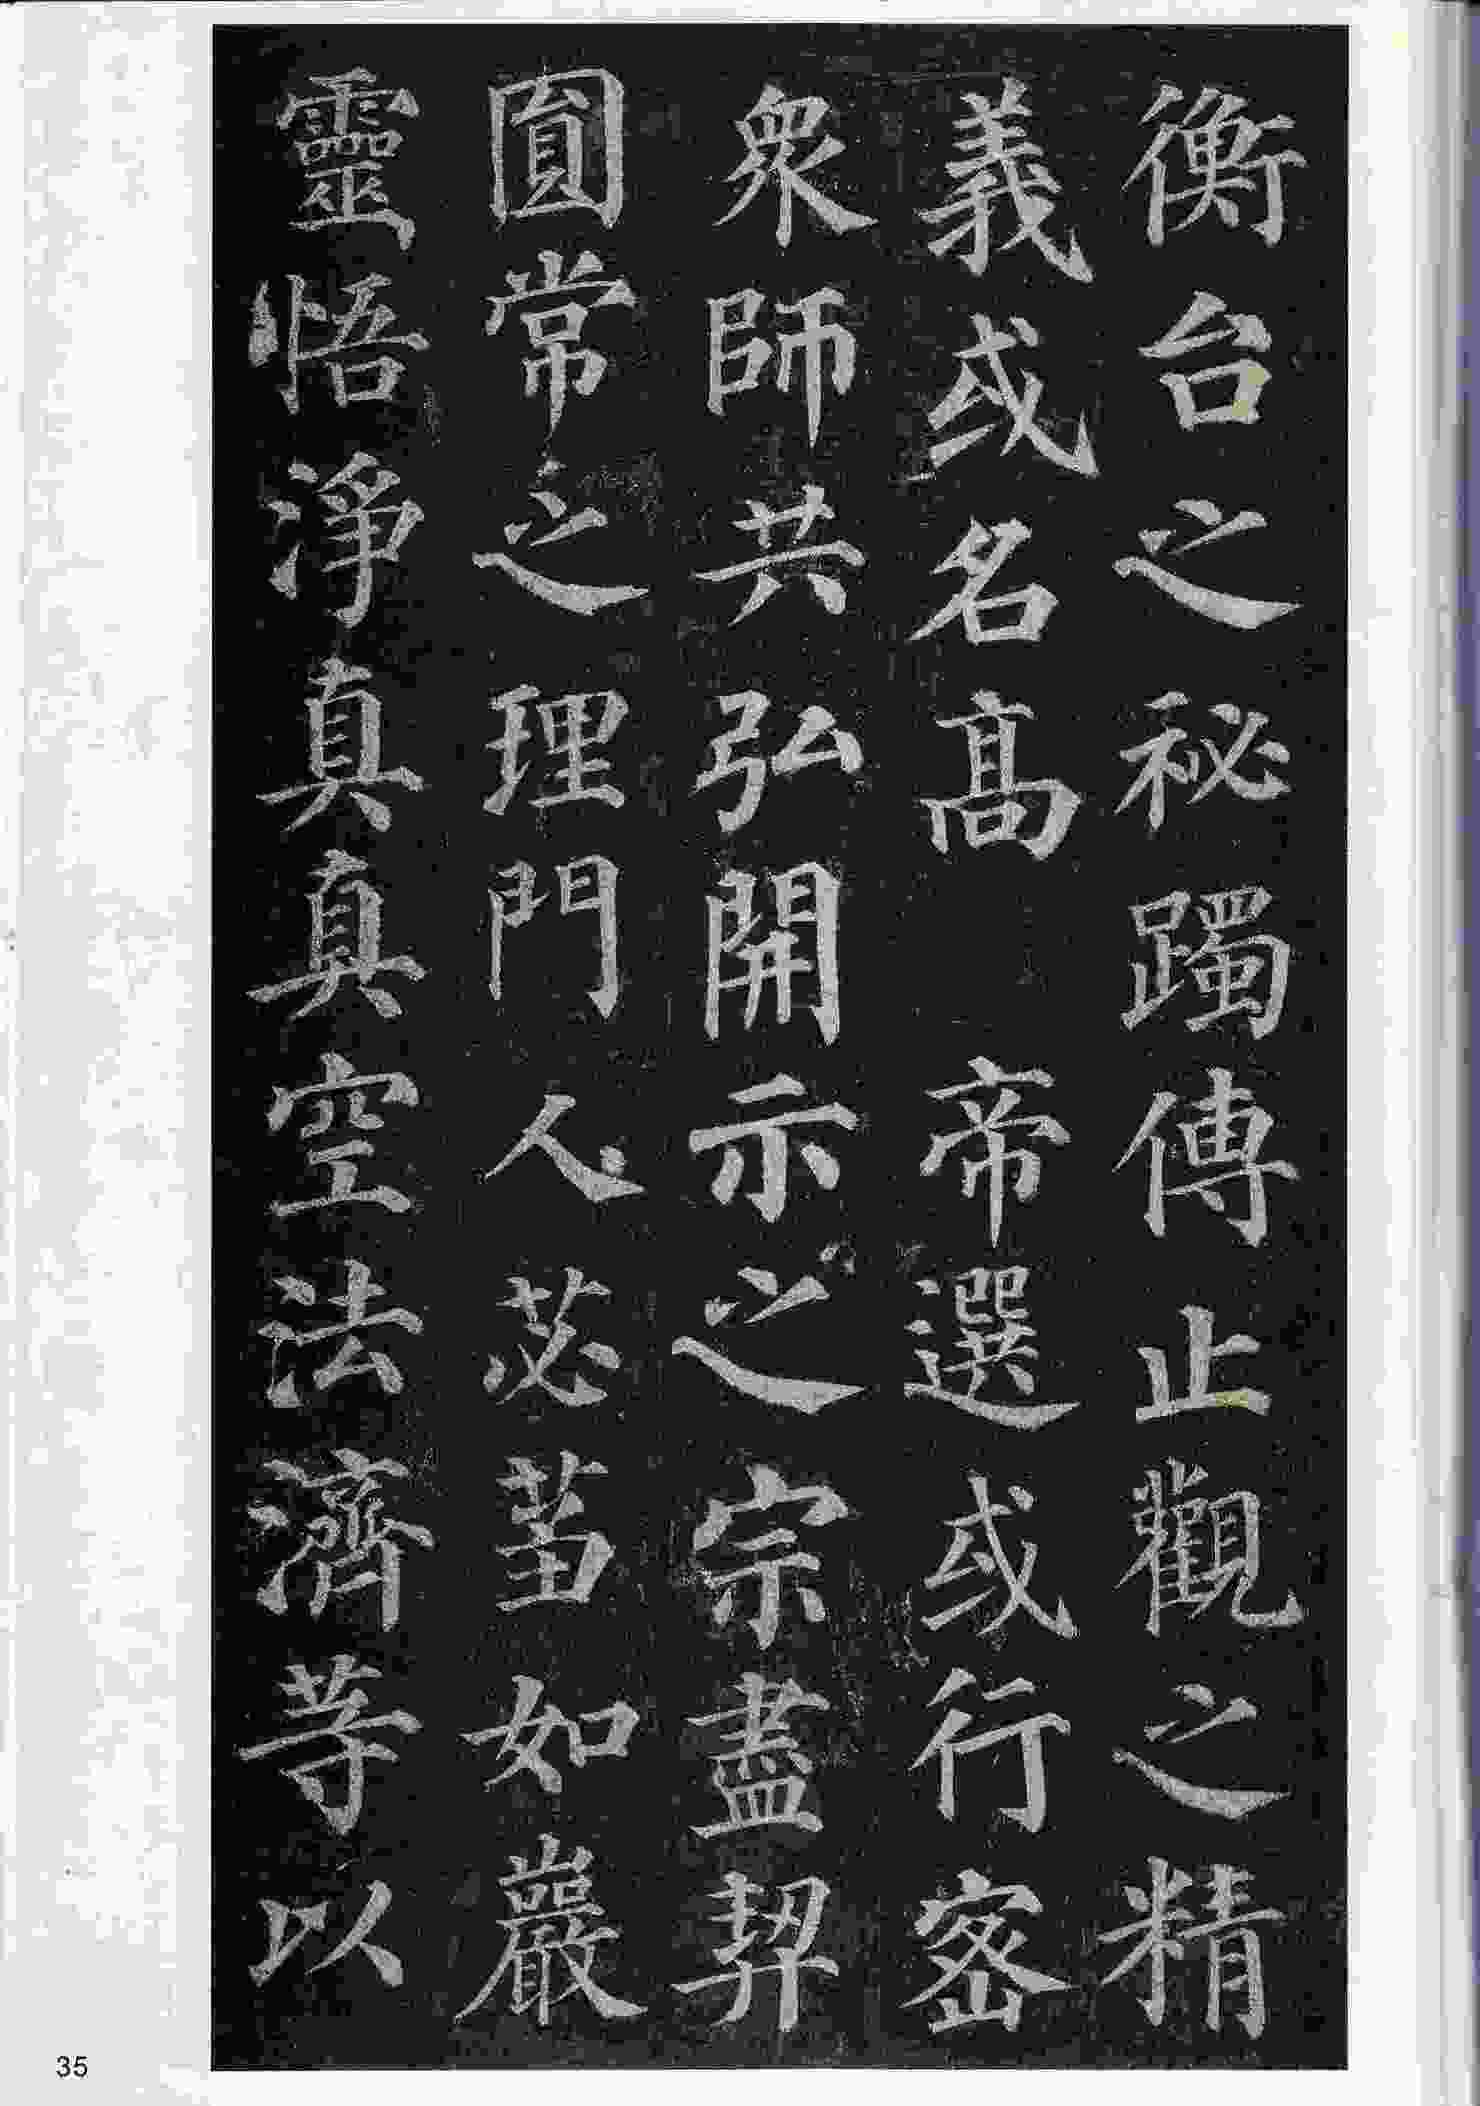 衡台之秘躅傳止觀之精
義或名高 帝選或行密
衆師共弘開示之宗盡契
圓常之理門人苾蒭如巖
靈悟淨真真空法濟等以
35